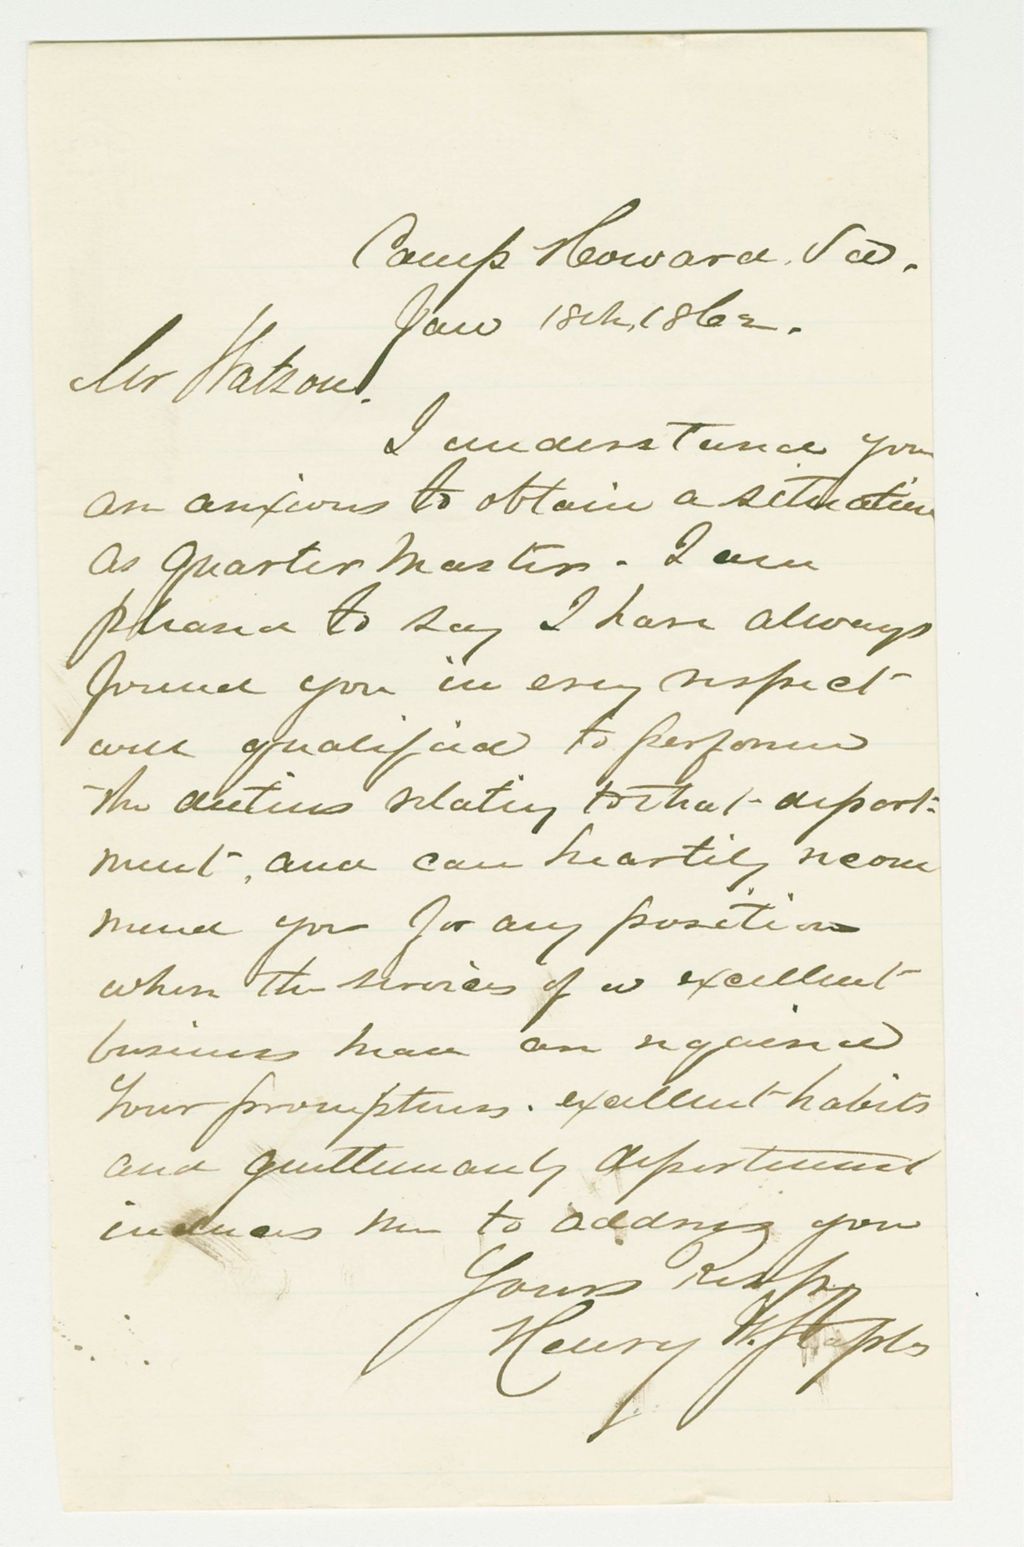 Camp Howard, Va.
Jan 18th, 1862.
Mr Watson.
I understand you
are anxious to obtain a situation
as Quarter Master. I am
pleased to say I have always
found you in every respect
well qualified to perform
the duties relating to that depart-
ment, and can heartily recom
mend you for any position
where the services of a excellent
business man are required
Your promptness. excellent habits
and gentlemanly deportment
induces me to address you
Yours Respy
Henry W. Staples